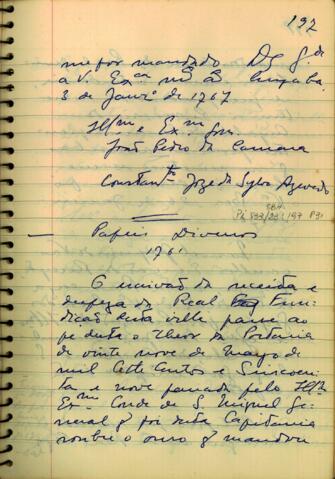 192
me for mandado Ds g.de
a V. Ex.cia m.s a.s Cuyaba
3 de Janr.o de 1767
Ill.mo e Ex.mo Snr.
João Pedro da Camara
Constant.no Joze da Sylva Azevedo
Papeis Diversos
O escrivão da receita e
despeza da Real Fun-
dição desta villa passe ao
pe desta o theor da Portaria
de vinte nove de mayo de
mil Sete Centos e Sincoen-
ta e nove passada pelo Ill.mo
Ex.mo Conde de S. Miguel Ge-
neral q foi desta Capitania
sobre o ouro q mandou